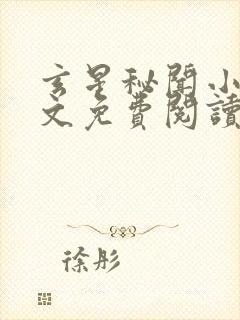 玄星秘聞小
文免費閱讀
徐彤